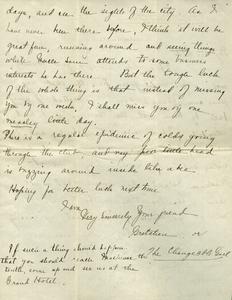 days, and see the sights of the city. As I
have never been there before, I think it will be
great fun, running around and seeing things
while Uncle attends to some business
interests he has there. But the tough luck
of the whole thing is that instead of missing
you by one week, I shall miss you by one
measley little day.
There is a regular epidemic of colds going
through the club, and my poor little head
is buzzing around inside like a bee.
Hoping for better luck next time
I am
Very sincerely Your friend
Gretchen or
The Changeable Girl
If such a thing should happen
that you should reach the
tenth, come up and see us at the
Grand Hotel.